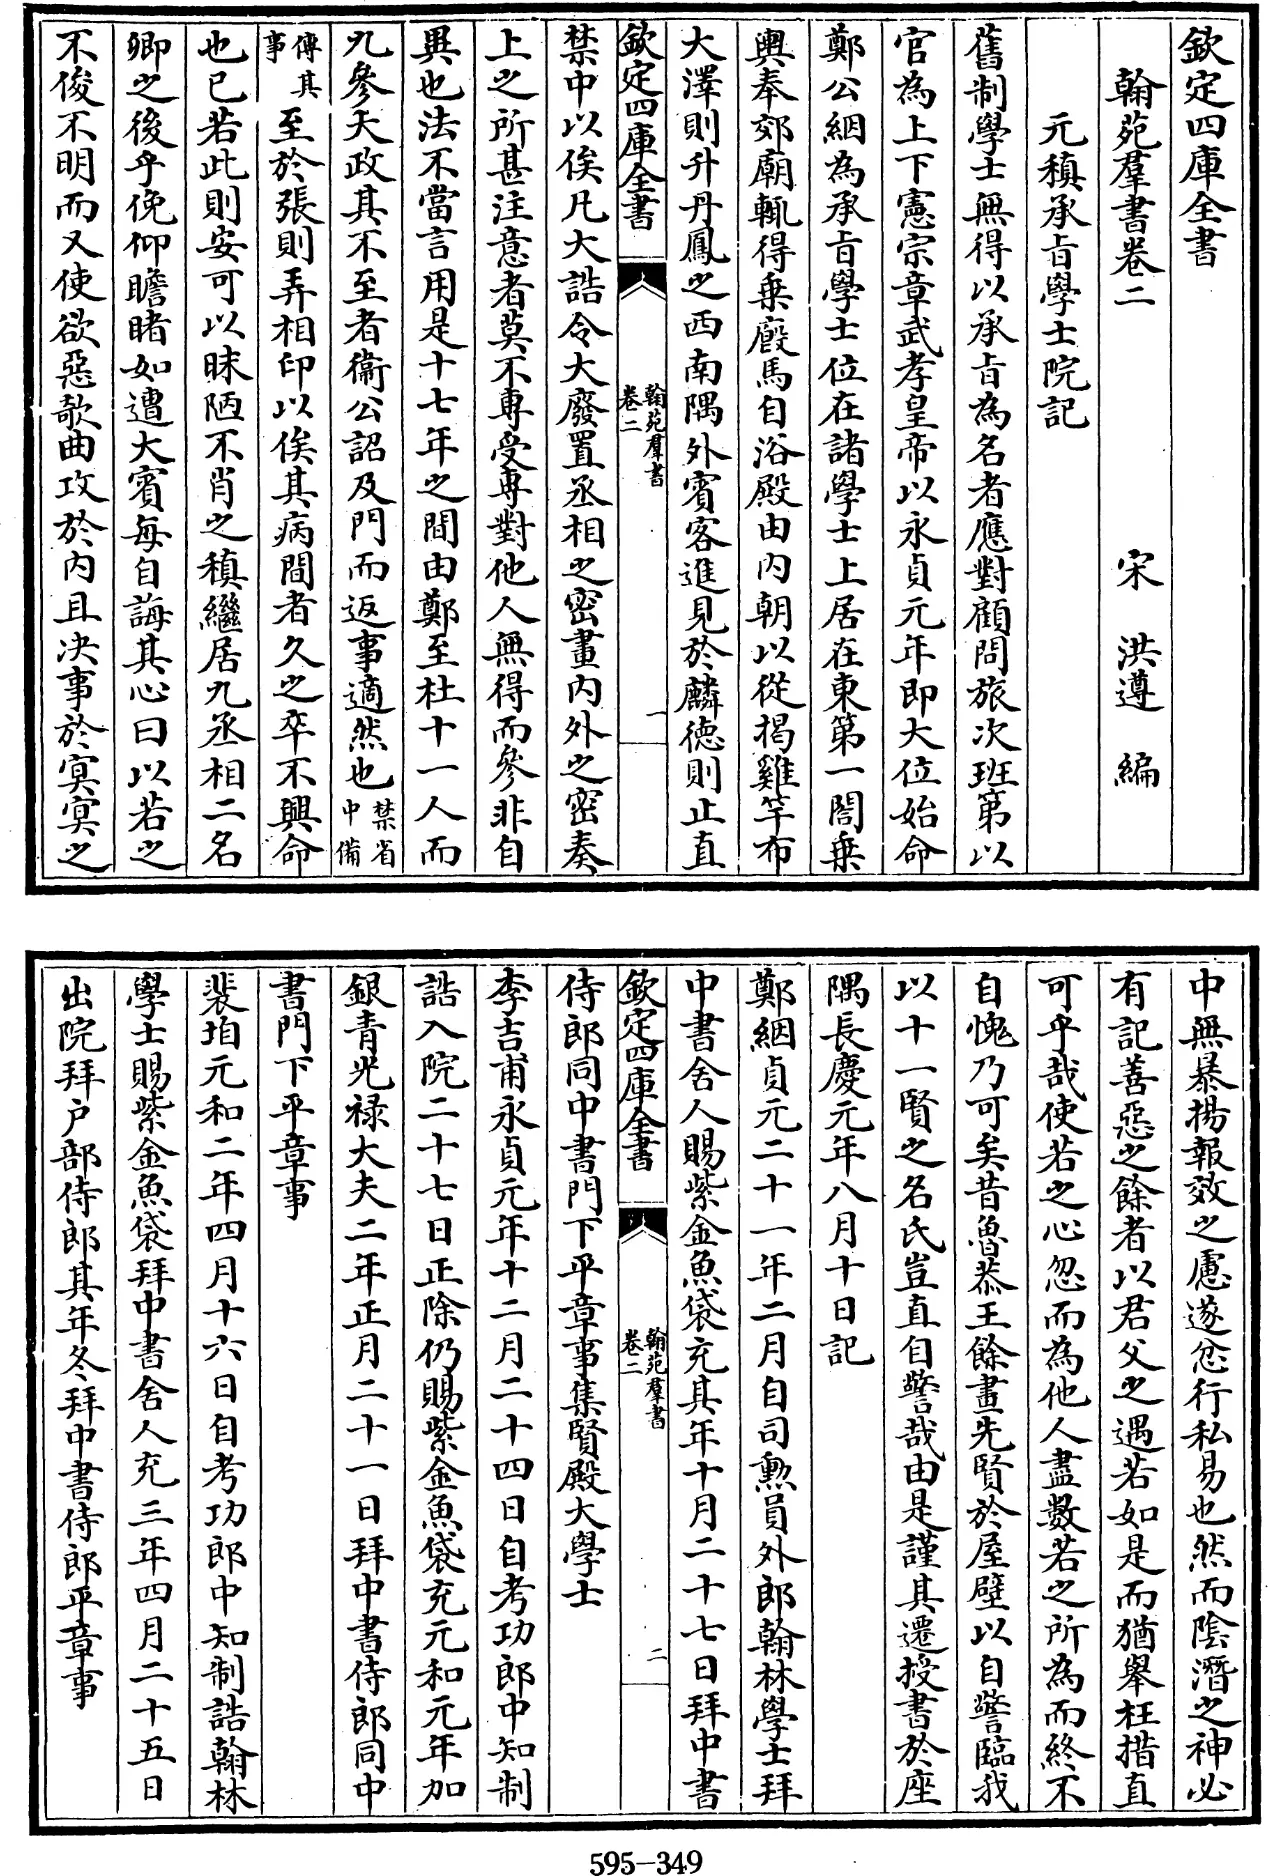 欽定四庫全書
翰苑羣書卷二　宋　洪遵　編
元稹承旨學士院記
舊制學士無得以承旨為名者應對顧問旅次班第以
官為上下憲宗章武孝皇帝以永貞元年即大位始命
鄭公絪為承旨學士位在諸學士上居在東第一閤乗
輿奉郊廟輒得乗廄馬自浴殿由内朝以從揭雞竿布
大澤則升丹鳳之西南隅外賓客進見於麟德則止直
欽定四庫全書
翰苑羣書
卷二
一
禁中以俟凡大誥令大廢置丞相之密畫内外之密奏
上之所甚注意者莫不專受專對他人無得而參非自
異也法不當言用是十七年之間由鄭至杜十一人而
九參大政其不至者衞公詔及門而返事適然也禁省中備
傳其事至於張則弄相印以俟其病間者久之卒不興命
也已若此則安可以昧陋不肖之稹繼居九丞相二名
卿之後乎俛仰瞻睹如遭大賓每自誨其心曰以若之
不俊不明而又使欲惡欹曲攻於内且决事於冥冥之
中無暴揚報效之慮遂忿行私易也然而陰潛之神必
有記善惡之餘者以君父之遇若如是而猶舉枉措直
可乎哉使若之心忽而為他人盡數若之所為而終不
自愧乃可矣昔魯恭王餘畫先賢於屋壁以自警臨我
以十一賢之名氏豈直自警哉由是謹其遷授書於座
隅長慶元年八月十日記
鄭絪貞元二十一年二月自司勲員外郎翰林學士拜
中書舍人賜紫金魚袋充其年十月二十七日拜中書
欽定四庫全書
翰苑羣書
卷二
二
侍郎同中書門下平章事集賢殿大學士
李吉甫永貞元年十二月二十四日自考功郎中知制
誥入院二十七日正除仍賜紫金魚袋充元和元年加
銀青光禄大夫二年正月二十一日拜中書侍郎同中
書門下平章事
裴垍元和二年四月十六日自考功郎中知制誥翰林
學士賜紫金魚袋拜中書舍人充三年四月二十五日
出院拜户部侍郎其年冬拜中書侍郎平章事
595-349